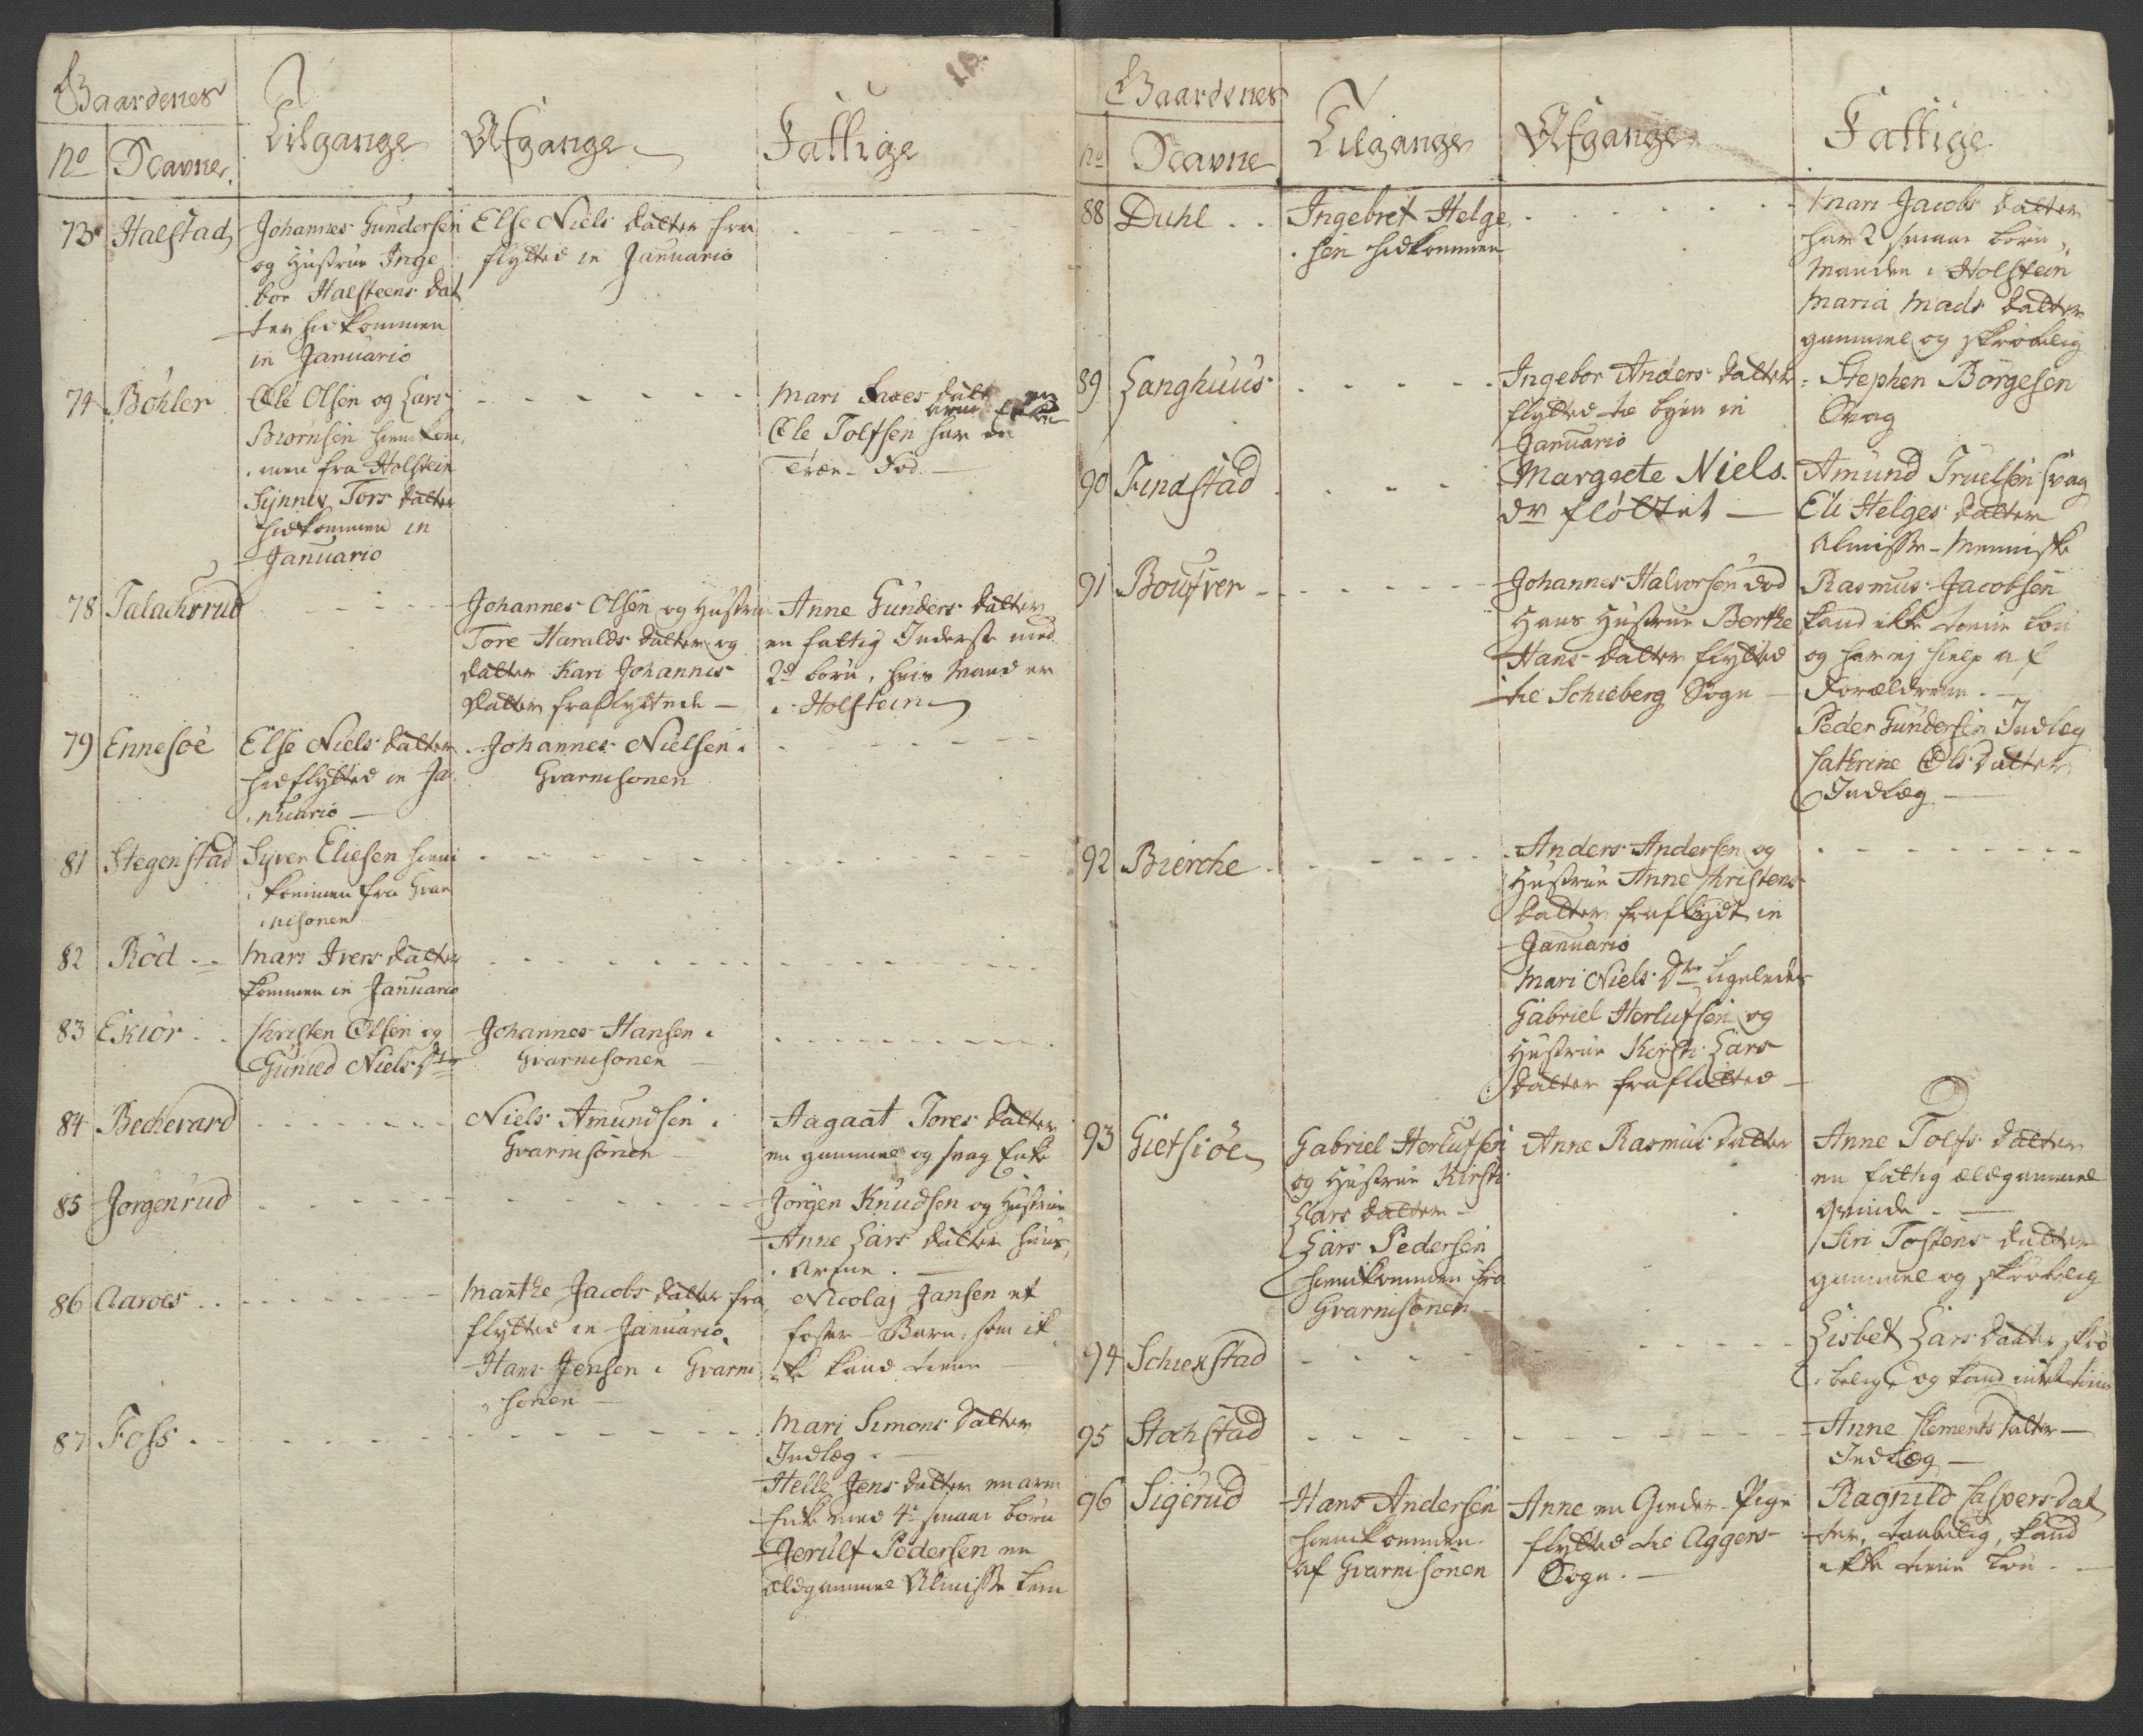 Gaardenes
No Navne.
Tilgange
Afgange
Fattige
73 Halstad
Johannes Gundersen
og Hustrue Inge
bor Halsteens dat
ter hidkommen
in Januario
Else Niels datter fra
flytted in Januario
74 Böhler
Ole Olsen og Lars
Biörnsen hiemkom
men fra Holstein
Synnev Tors datter
hidkommen in
Januario
Mari
Ole Tolfsen har en
Træe-Fod
78 Talachsrud
Johannes Olsen og Hustru
Tore Haralds datter og
datter Kari Johannes
datter fraflyttede
Anne Gunders datter
en fattig Inderste med
2de börn, hvis Mand er
i Holstein
79 Ennesöe
Else Niels datter
hidflytted in Ja
nuario
Johannes Nielsen i
Gvarnisonen
81 Stegenstad
Syver Eliesen hiem
kommen fra Gvar
nisonen
82 Röd
Mari Ivers datter
kommen in Januario
83 Ekiör
Christen Olsen og
Gunild Niels dtr
Johannes Hansen i
Gvarnisonen
84 Becherard
Niels Amundsen i
Gvarnisonen
Aagaat Tores datter
en gammel og svag Enke
85 Jörgenrud
Jörgen Knudsen og Hustrue
Anne Lars datter huus
arme
86 Aaroes
Marthe Jacobs datter fra
flytted in Januario.
Hans Jensen i Gvarni
sonen
Nicolaj Jansen et
foster-Barn, som ik
ke kand tiene
87 Foss
Mari Simons datter
Indlæg.
Helle Jens datter en arm
Enke med 4re smaae börn
Jerulf Pedersen en
ældgammel Almisse Lem
Gaardenes
No Navne
Tilgange
Afgange
Fattige
88 Duhl
Ingebret Helge
sen hidkommen
Mari Jacobs datter
har 2 smaae börn,
Manden i Holstein
Maria Mads datter
gammel og skröbelig
89 Langhuus
Ingebor Anders datter
flytted til byen in
Januario
Stephen Börgesen
Svag
90 Findstad
Margrete Niels
dr flöttet
Amund Truelsen svag
Eli Helges datter
Almisse-Menniske
91 Boufver
Johannes Halvorsen död
Hans Hustrue Berthe
Hans datter flytted
til Schieberg Sogn
Rasmus Jacobsen
kand ikke tiene Lön
og har ej hielp af
Forældrene.
Peder Gundersen Indlæg
Cathrine Ols datter
Indlæg
92 Bierche
Anders Andersen og
Hustrue Anne Christens
datter fraflydt in
Januario
Mari Niels Dtr ligeledes
Gabriel Herlufsen og
Hustrue Kirsti Lars
datter fraflötted
93 Gietsiöe
Gabriel Herlufsen
og Hustrue Kirsti
Lars datter
Lars Pedersen
hiemkommen fra
Gvarnisonen
Anne Rasmus datter
Anne Tolfs datter
en fattig ældgammel
Qvinde.
Siri Tostens datter
gammel og skröbelig
94 Schiekstad
Lisbet Lars datter skrö
belig, og kand intet tiene
95 Stochstad
Anne Clements datter
Indlæg
96 Sigerud
Hans Andersen
hiemkommen
af Gvarnisonen
Anne en Gieder-Pige
flytted til Aggers
Sogn.
Ragnild Caspers dat
ter, taabelig, kand
ikke tiene Lön